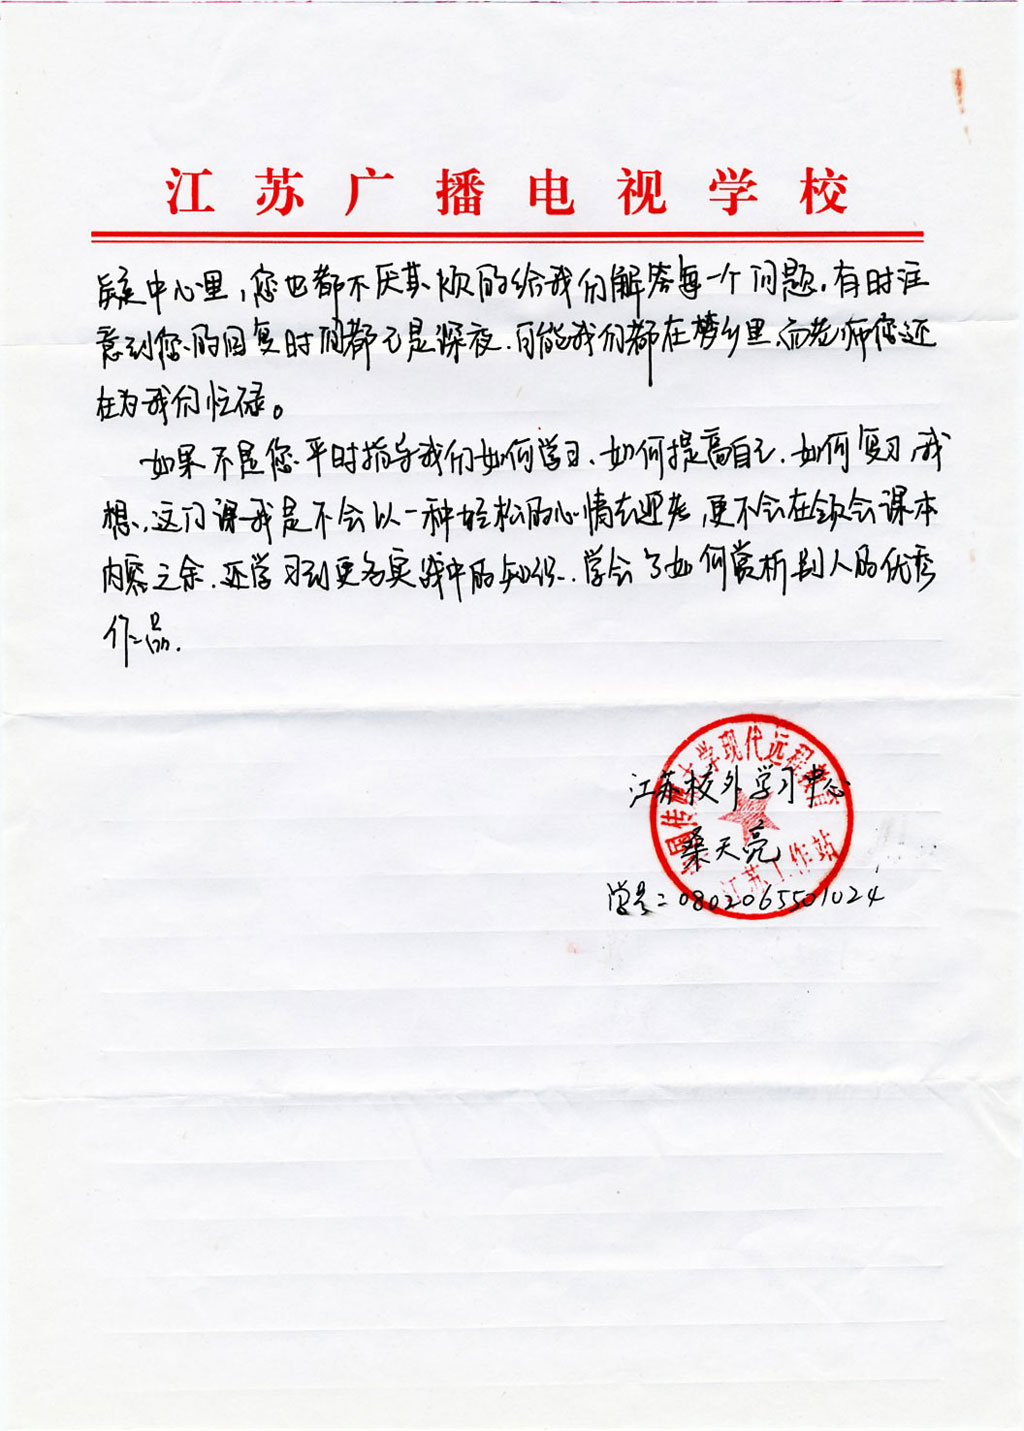 江苏广播电视学校
疑中心里，您也都不厌其烦的给我们解答每一个问题。有时注
意到您的回复时间都已是深夜，可能我们都在梦乡里，而老师您还
在为我们忙碌。
如果不是您平时指导我们如何学习、如何提高自己、如何复习，我
想，这门课我是不会以一种轻松的心情去迎考，更不会在领会课本
内容之余，还学习到更多实践中的知识，学会了如何赏析别人的优秀
作品.
国传媒大学现代远程教育
江苏校外学习中心
桑天亮
江苏工作站
学号：0802065501024